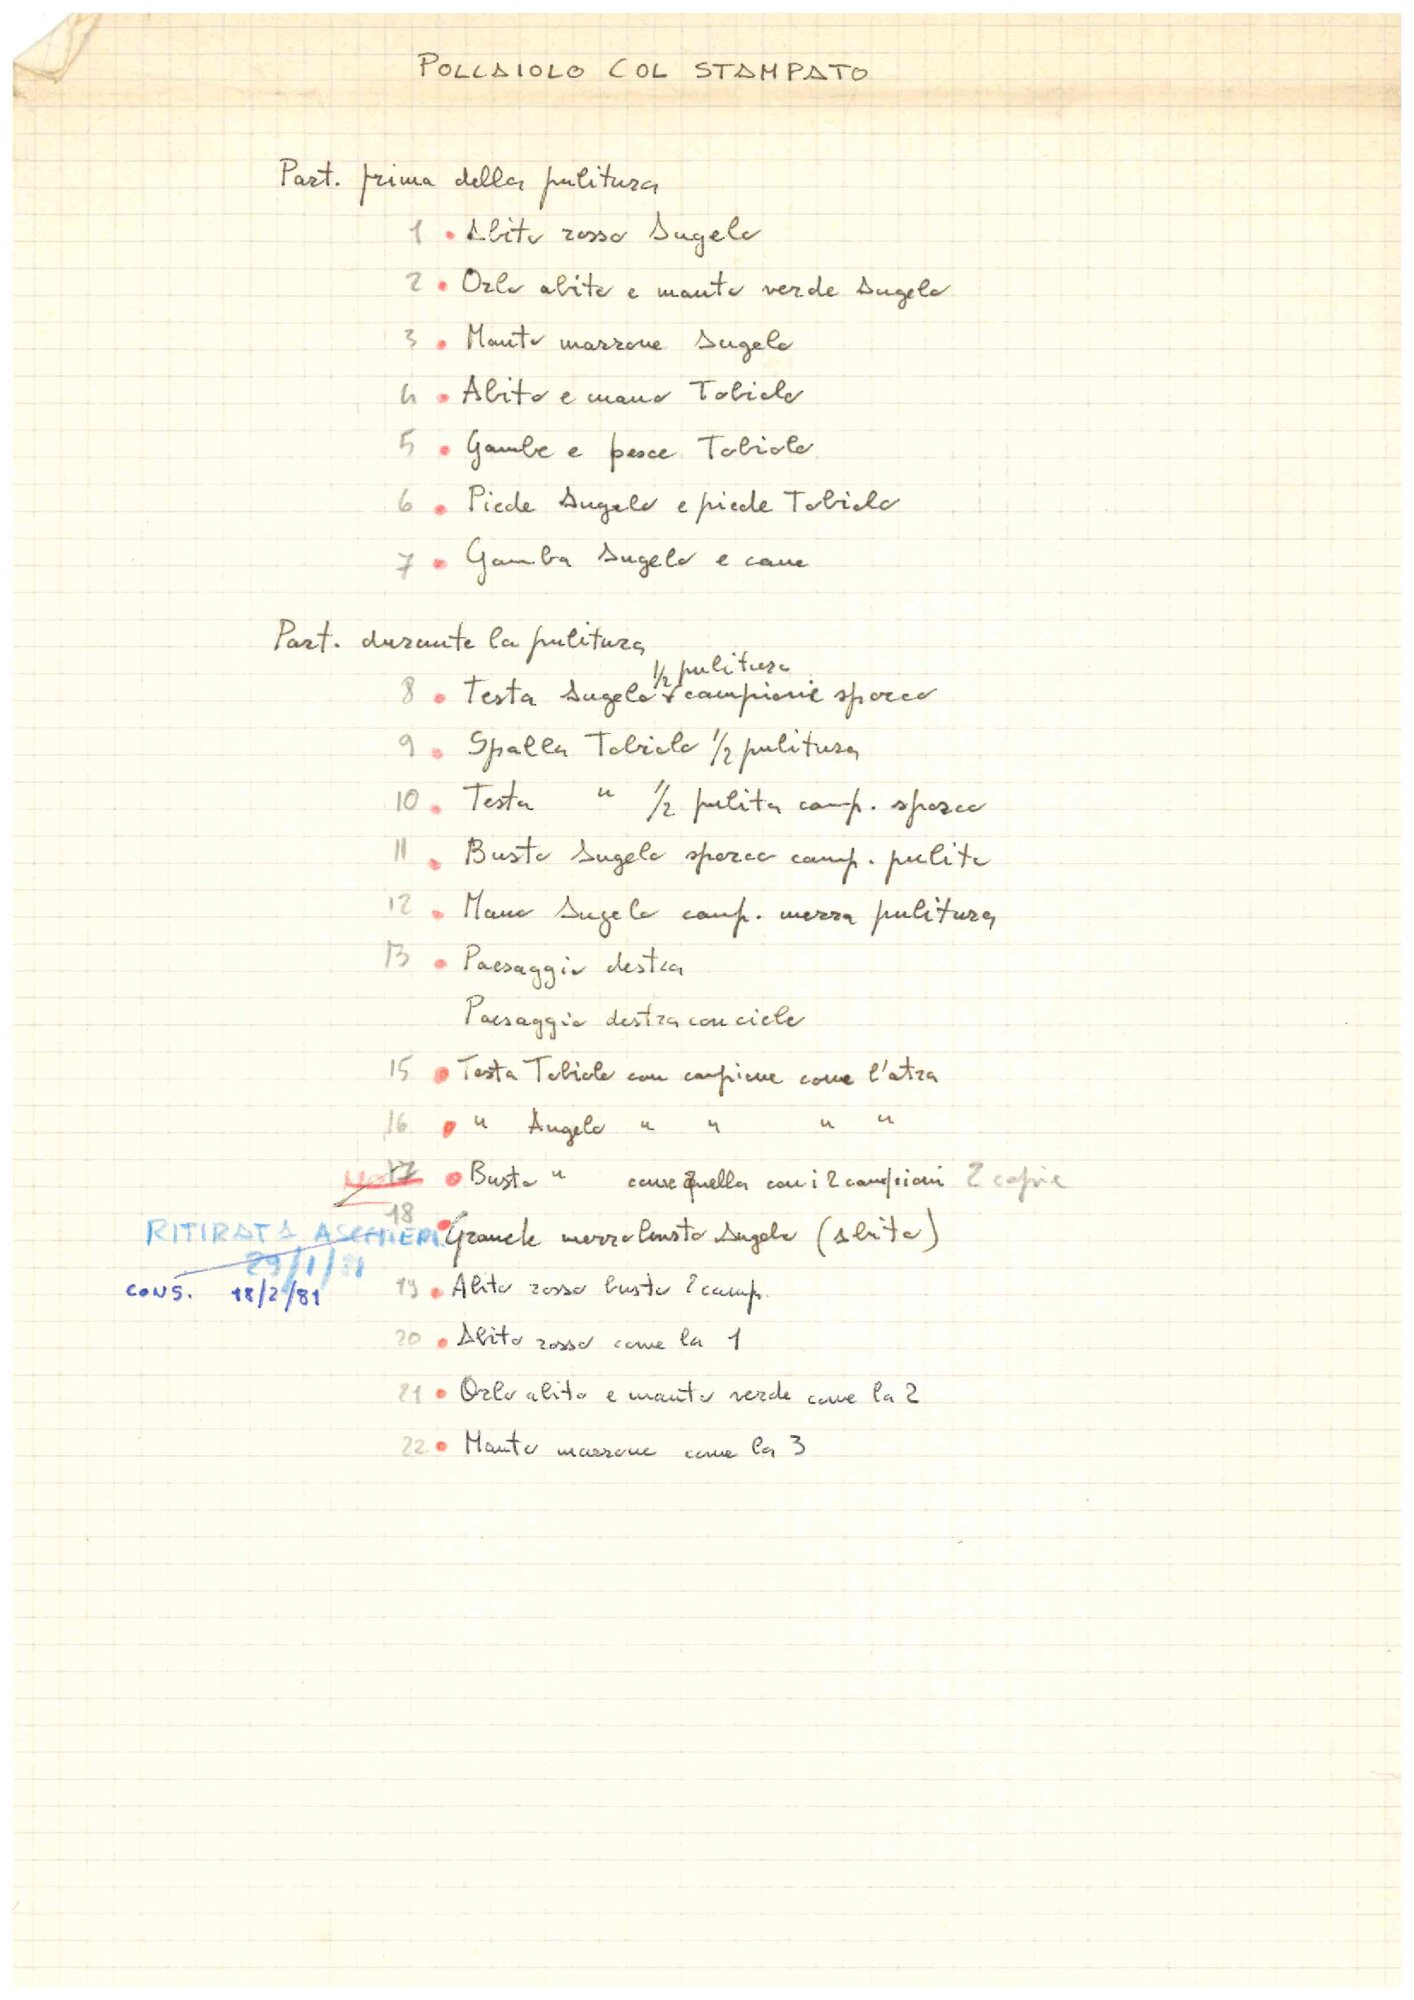 POLLAIOLO COL STAMPATO
Part. prima della pulitura
1 • Abito rosso Angelo
2 • Orlo abito e manto verde Angelo
3 • Manto marrone Angelo
4 • Abito e mano Tobiolo
5 • Gambe e pesce Tobiolo
6 • Piede Angelo e piede Tobiolo
7 • Gamba Angelo e cane
Part. durante la pulitura
1/2 pulitura
8 • Testa Angelo campione sporco
9 • Spalla Tobiolo 1/2 pulitura
10 • Testa " 1/2 pulita camp. sporco
11 • Busto Angelo sporco camp. pulito
12 • Mano Angelo camp. mezza pulitura
13 • Paesaggio destra
Paesaggio destra con cielo
15 • Testa Tobiolo con campione come l'atra
16 • " Angelo " " " "
17 • Busto " come quella con i 2 campioni 2 copie
18 • Grande mezzo busto Angelo (Abito)
RITIRATA ASCHIERI
29/1/81
CONS. 18/2/81
19 • Abito rosso busto 2 camp.
20 • Abito rosso come la 1
21 • Orlo abito e manto verde come la 2
22 • Manto marrone come la 3